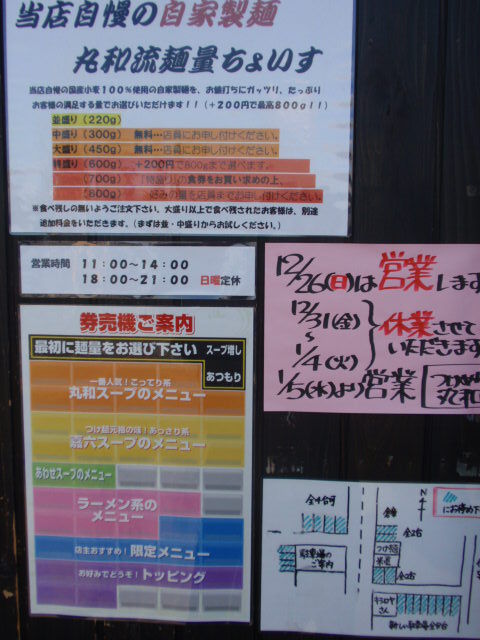 当店自慢の自家製麺
丸和流麺量ちょいす
当店自慢の国産小麦100%使用の自家製麺を、お値打ちにガッツリ、たっぷり
お客様の満足する量でお選びいただけます!!(+200円で最高800g!!)
並盛り(220g)
中盛り(300g) 無料…店員にお申し付けください。
大盛り(450g) 無料…店員にお申し付けください。
特盛り(600g) +200円で800gまで選べます。
(700g) 「特盛り」の食券をお買い求めの上、
(800g) 好みの量を店員までお申し付けください。
※食べ残しの無いようご注文下さい。大盛り以上で食べ残されたお客様は、別途
追加料金をいただきます。(まずは並・中盛りからお試しください。)
営業時間 11:00~14:00
18:00~21:00 日曜定休
券売機ご案内
最初に麺量をお選び下さい スープ増し
あつもり
一番人気!こってり系
丸和スープのメニュー
つけ麺元祖の味!あっさり系
嘉六スープのメニュー
あわせスープのメニュー
ラーメン系の
メニュー
店主おすすめ!限定メニュー
お好みでどうぞ!トッピング
12/26(日)は営業します
12/31(金)
~
1/4(火)
休業させて
いただきます
1/5(水)より営業
つけめん
丸和
N
にお停め下
全4台可
駐車場の
ご案内
全2台
つけ麺
全2台
キシロヤ
さん
新しい駐車場